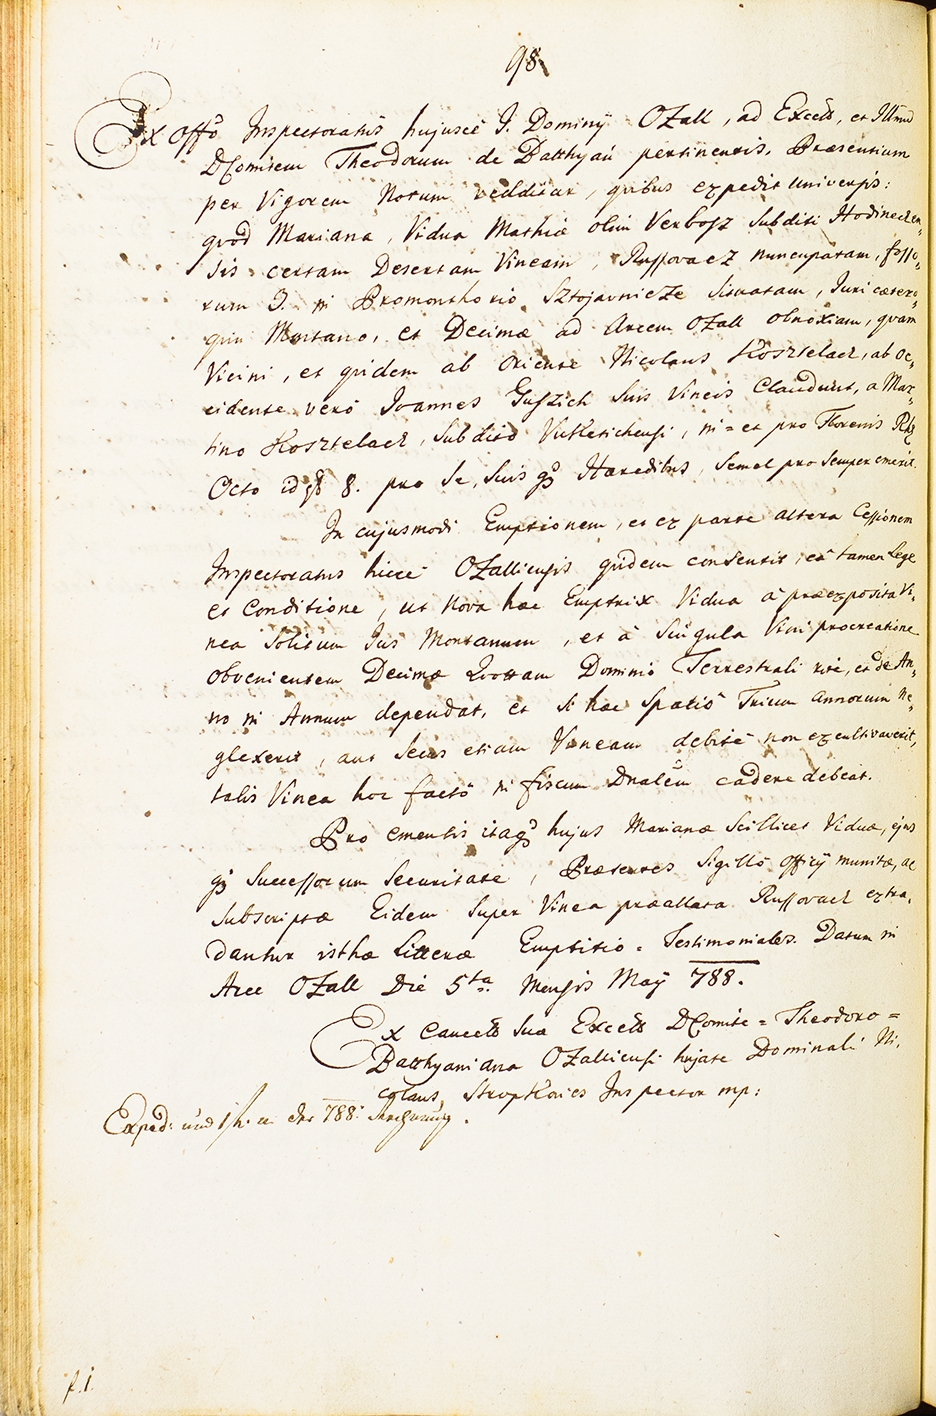 98
Ex Offō Inspectoratûs hujusce I. Dominÿ Ozall, ad Excells, et Illmum
DComitem Theodorum de Batthyán pertinentis, Præsentium
per Vigorem Notum redditur, quibus expedit universis:
quòd Mariana, Vidua Mathiæ olim Verbosz Subditi Hodineczen=
sis certam Desertam Vineam, Russovacz nuncupatam, fosso=
rum 3. in Promonthorio Sztojavnicze situatam, Juri cætero=
quin Montano, et Decimæ ad Arcem Ozall obnoxiam, quam
Vicini, et quidem ab Oriente Nicolaus Kosztelacz, ab Oc=
cidente verò Joannes Guszich suis Vineis Claudunt, a Mar=
tino Kosztelacz, Subdito Vuketichensi, in= et pro Florenis
Octo id est 8. pro Se, Suis qȝ Hæredibus, Semel pro Semper emerit.
In cujusmodi Emptionem, et ex parte altera Cessionem
Inspectoratus hicce Ozalliensis quidem consentit, eâ tamen Lege
et Conditione, ut Nova hæc Emptrix Vidua à præexposita Vi=
nea Solitum Jus Montanum, et à Singula Vini procreatione
obvenientem Decimæ Quottam Dominio Terrestrali ritè, et de An=
no in Annum dependat, et si hæc Spatiô Trium Annorum Ne=
glexerit, aut Secus etiam Vineam debitè non excultivaverit,
talis Vinea hoc factô in fiscum Dnalem cadere debeat.
Pro ementis itaqȝ hujus Marianæ Scillicet Viduæ, ejus
qȝ Successorum Securitate, Præsentes Sigillô Officÿ munitæ, ac
Subscriptæ Eidem Super Vinea præallata Russovacz extra=
dantur isthæ Litteræ Emptitio=Testimoniales. Datum in
Arce Ozall Die 5ta Mensis Maÿ 788.
Ex Cancells Suæ Excells DComite=Theodoro=
Batthyaniana Ozalliensi hujate Dominali Ni=
colaus Inspector mp:
Exped: und 788
f. 1.